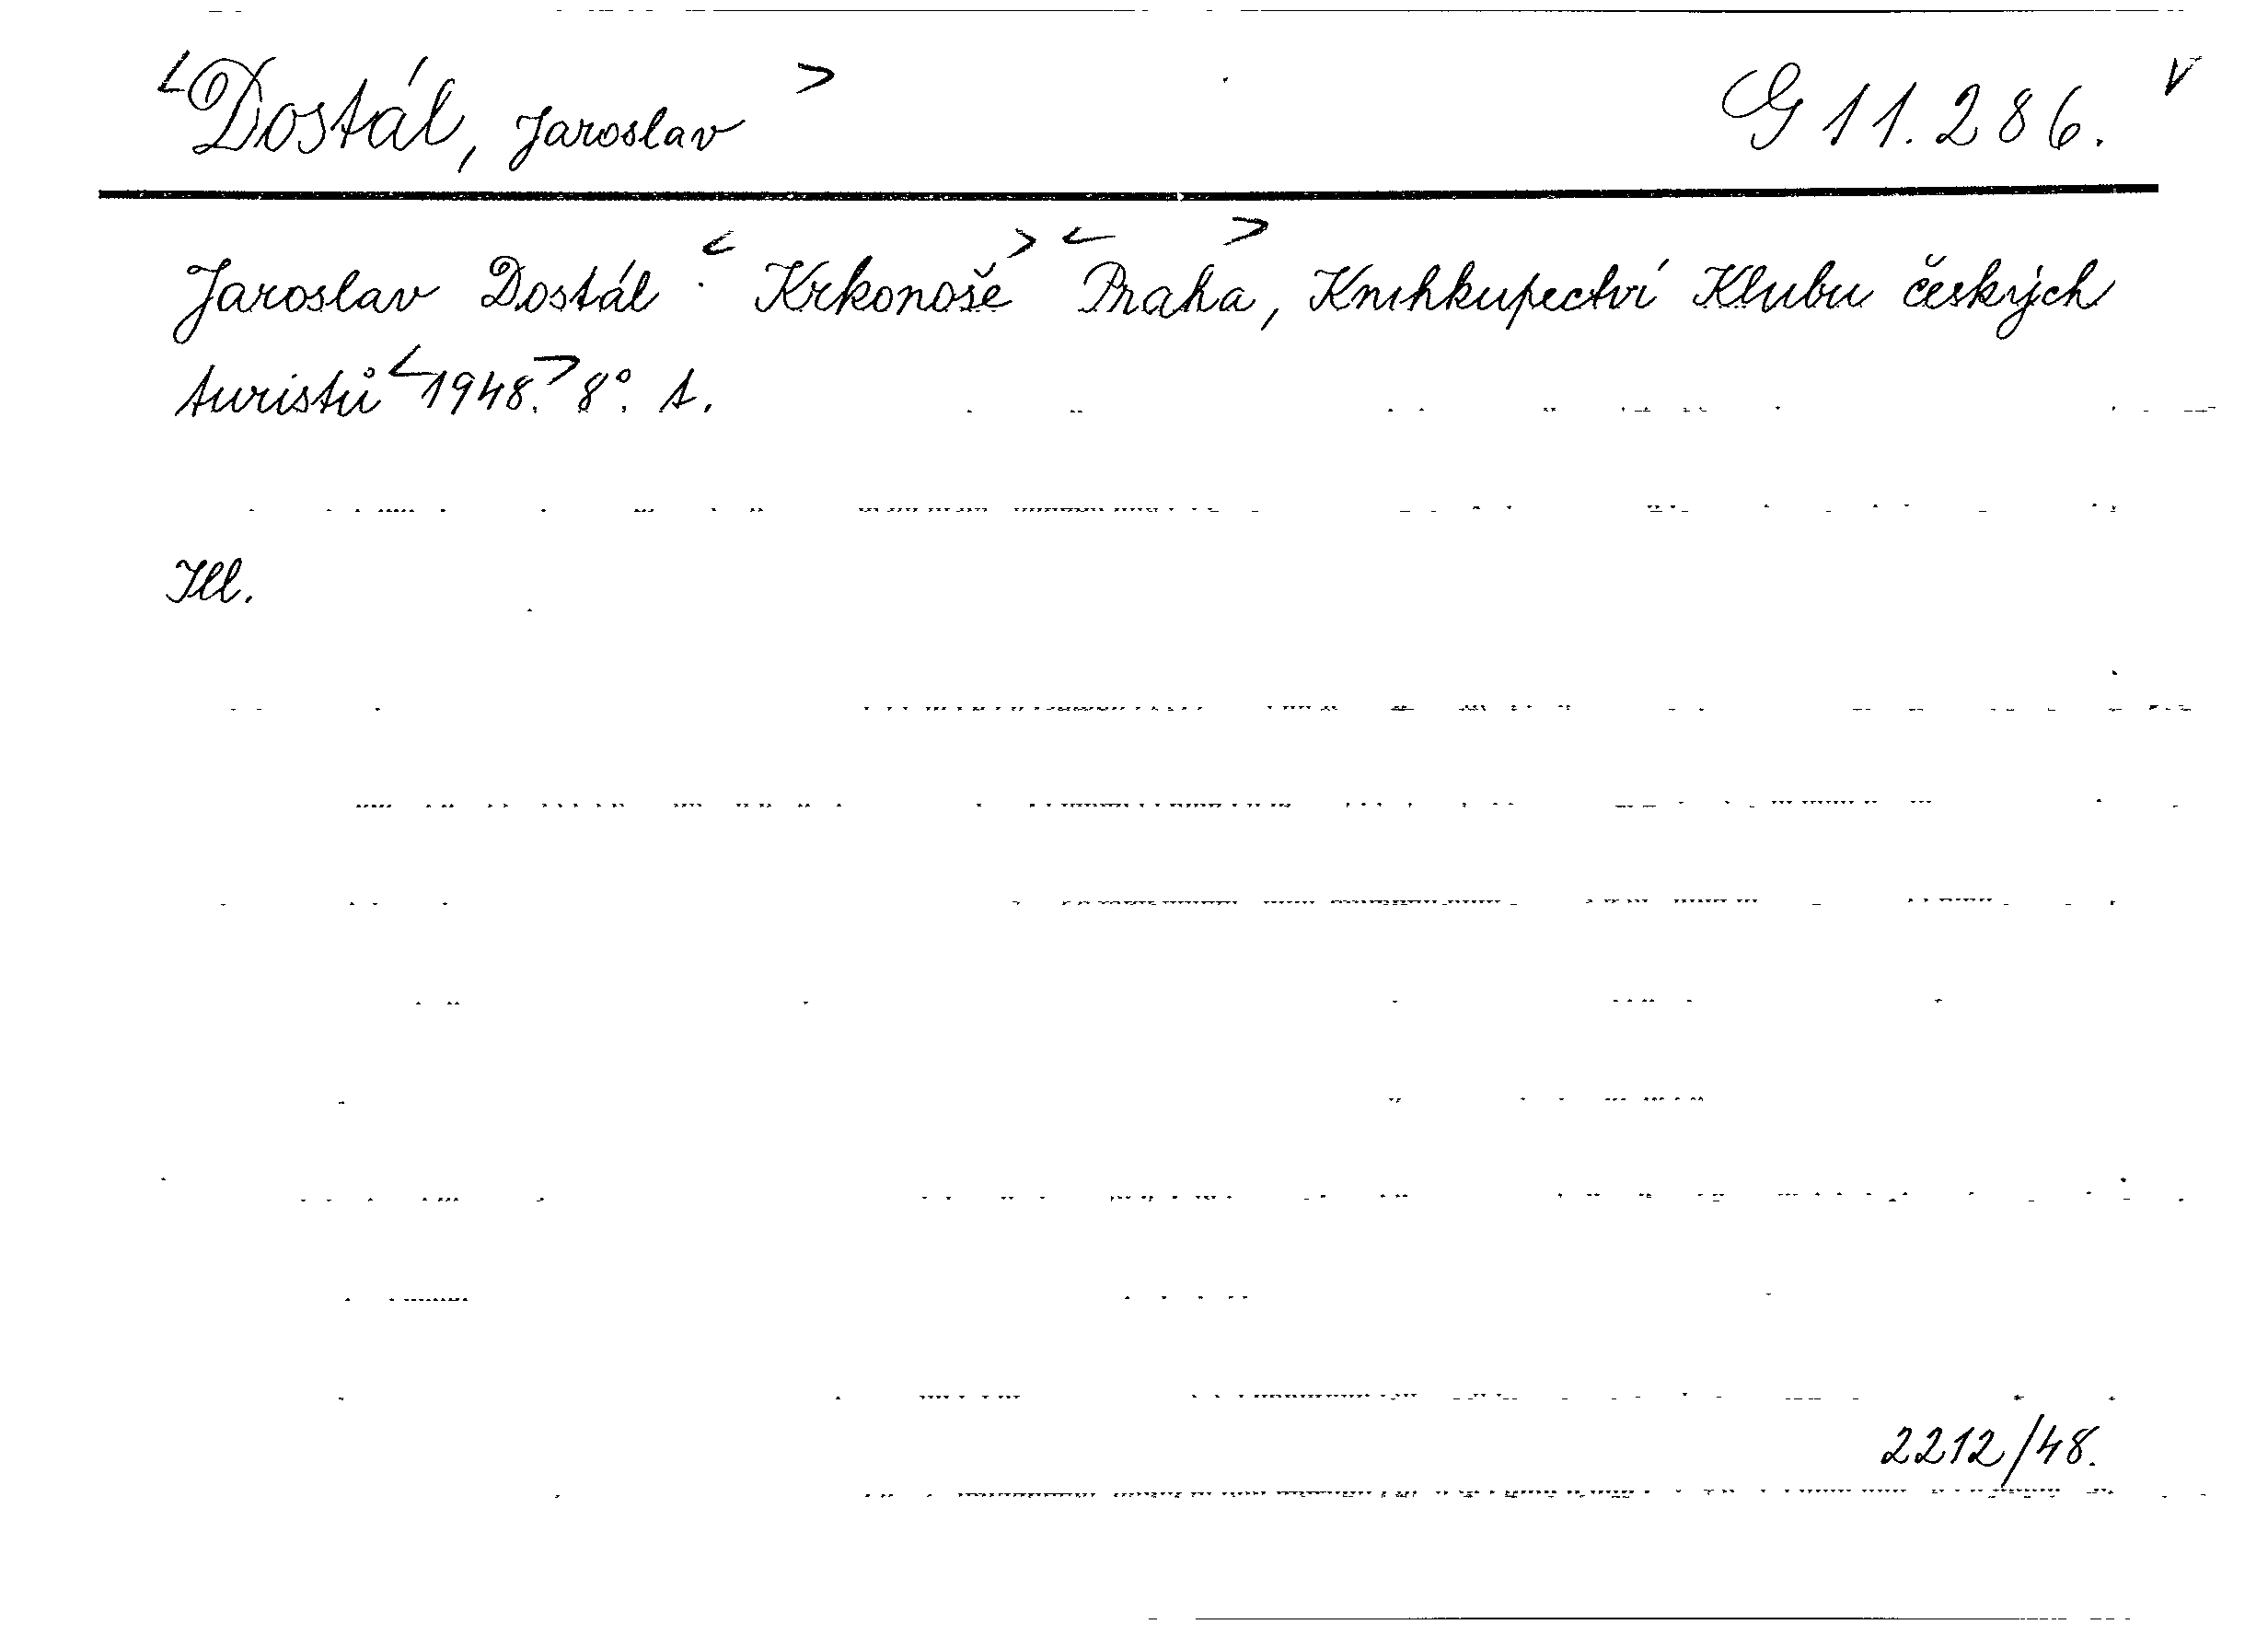 <Dostál, Jaroslav> G 11.286. v
Jaroslav Dostál : <Krkonoše> <Praha>, Knihkupectví Klubu českých
turistů <1948.> 8°. s.
Ill.
2212/48.